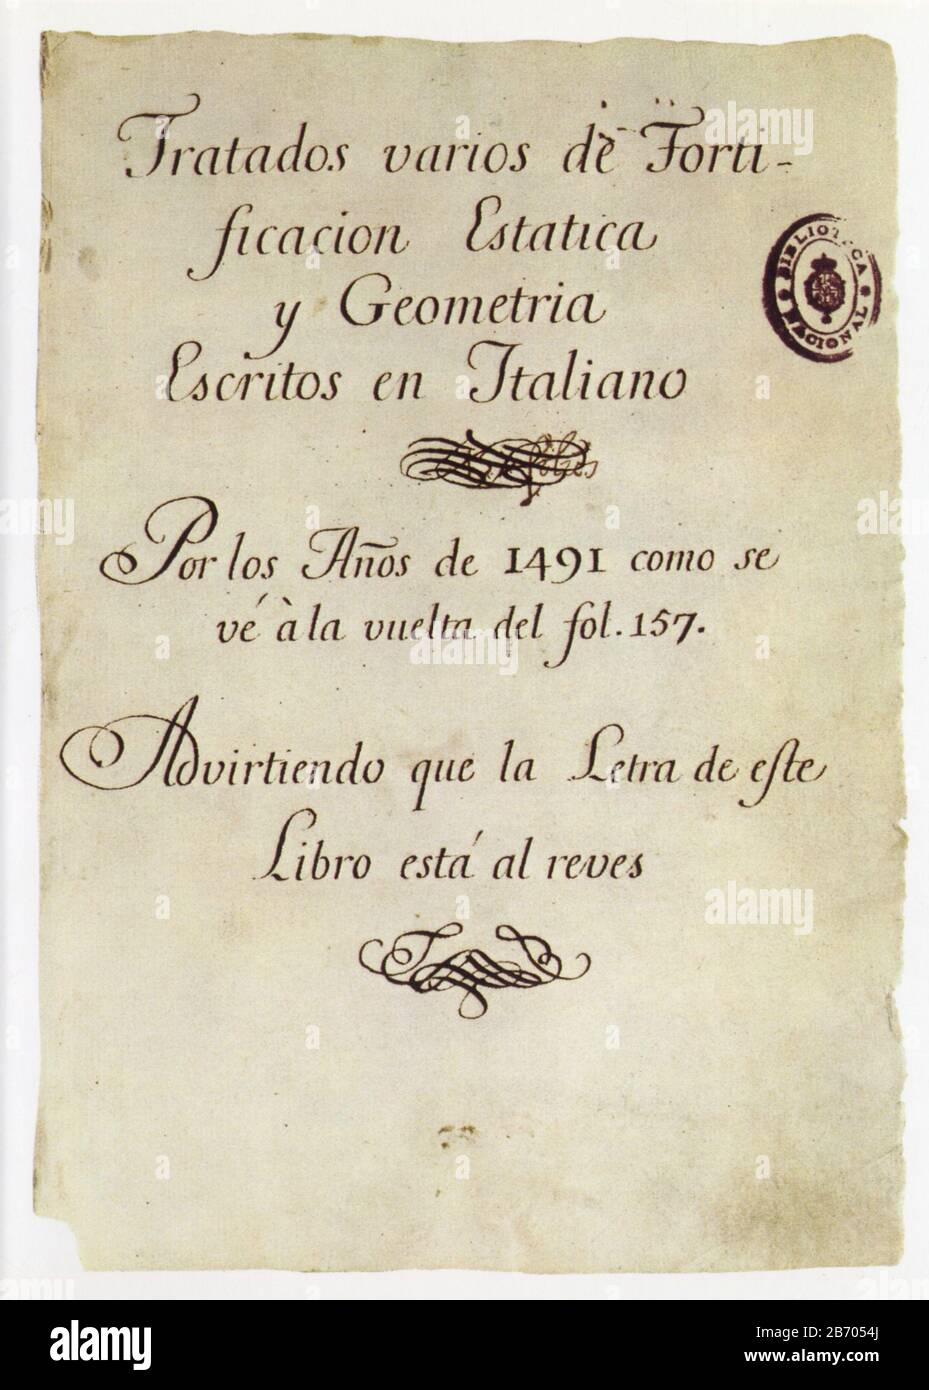 Tratados varios de Forti-
ficacion Estatica
y Geometria
Escritos en Italiano
BIBLIOTECA NACIONAL
Por los Años de 1491 como se
vé à la vuelta del fol. 157.
Advirtiendo que la Letra de este
Libro está al reves
alamy
Image ID: 2B7054J
www.alamy.com